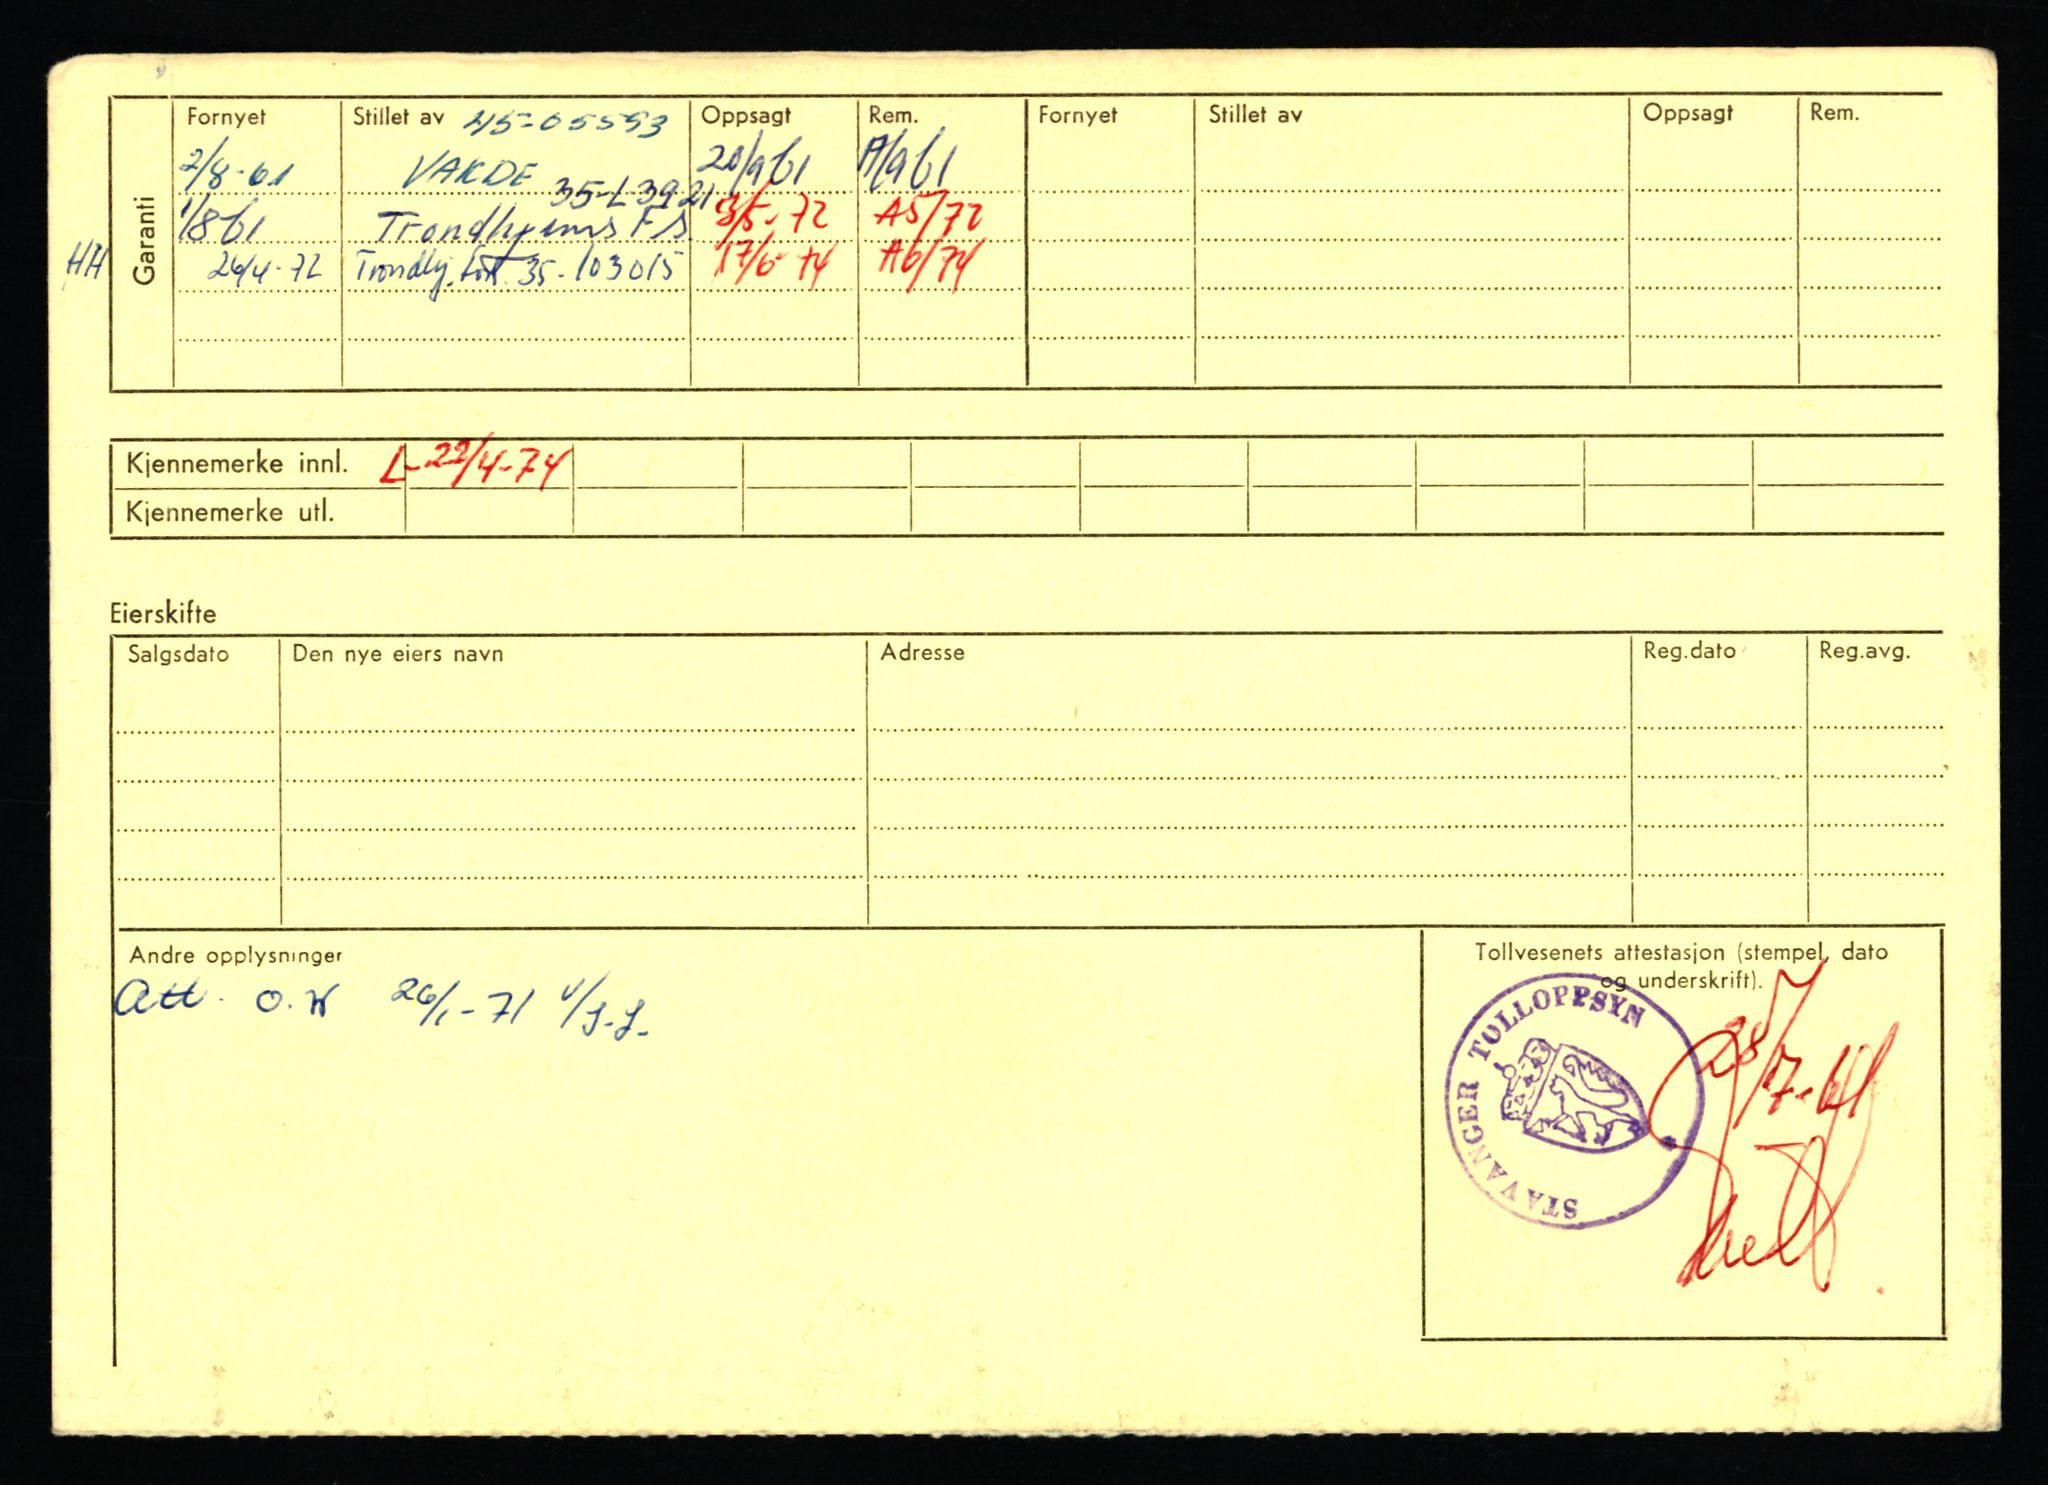 Fornyet Stillet av 45-05593 Oppsagt Rem. Fornyet Stillet av Oppsagt Rem.
2/8-61 VARDE 20/9 61 A/9 61
35-L 39 21
1/8 61 Trondhjems F s 3/5-72 A5/72
HH 24/4-72 Trondhj. 35-103015 17/6-74 A6/74
Garanti
Kjennemerke innl. L-22/4-74
Kjennemerke utl.
Eierskifte
Salgsdato Den nye eiers navn Adresse Reg.dato Reg.avg.
Andre opplysninger
Att. O.W 26/1-71
Tollvesenets attestasjon (stempel, dato
og underskrift).
STAVANGER TOLLOPPSYN
28/7-61